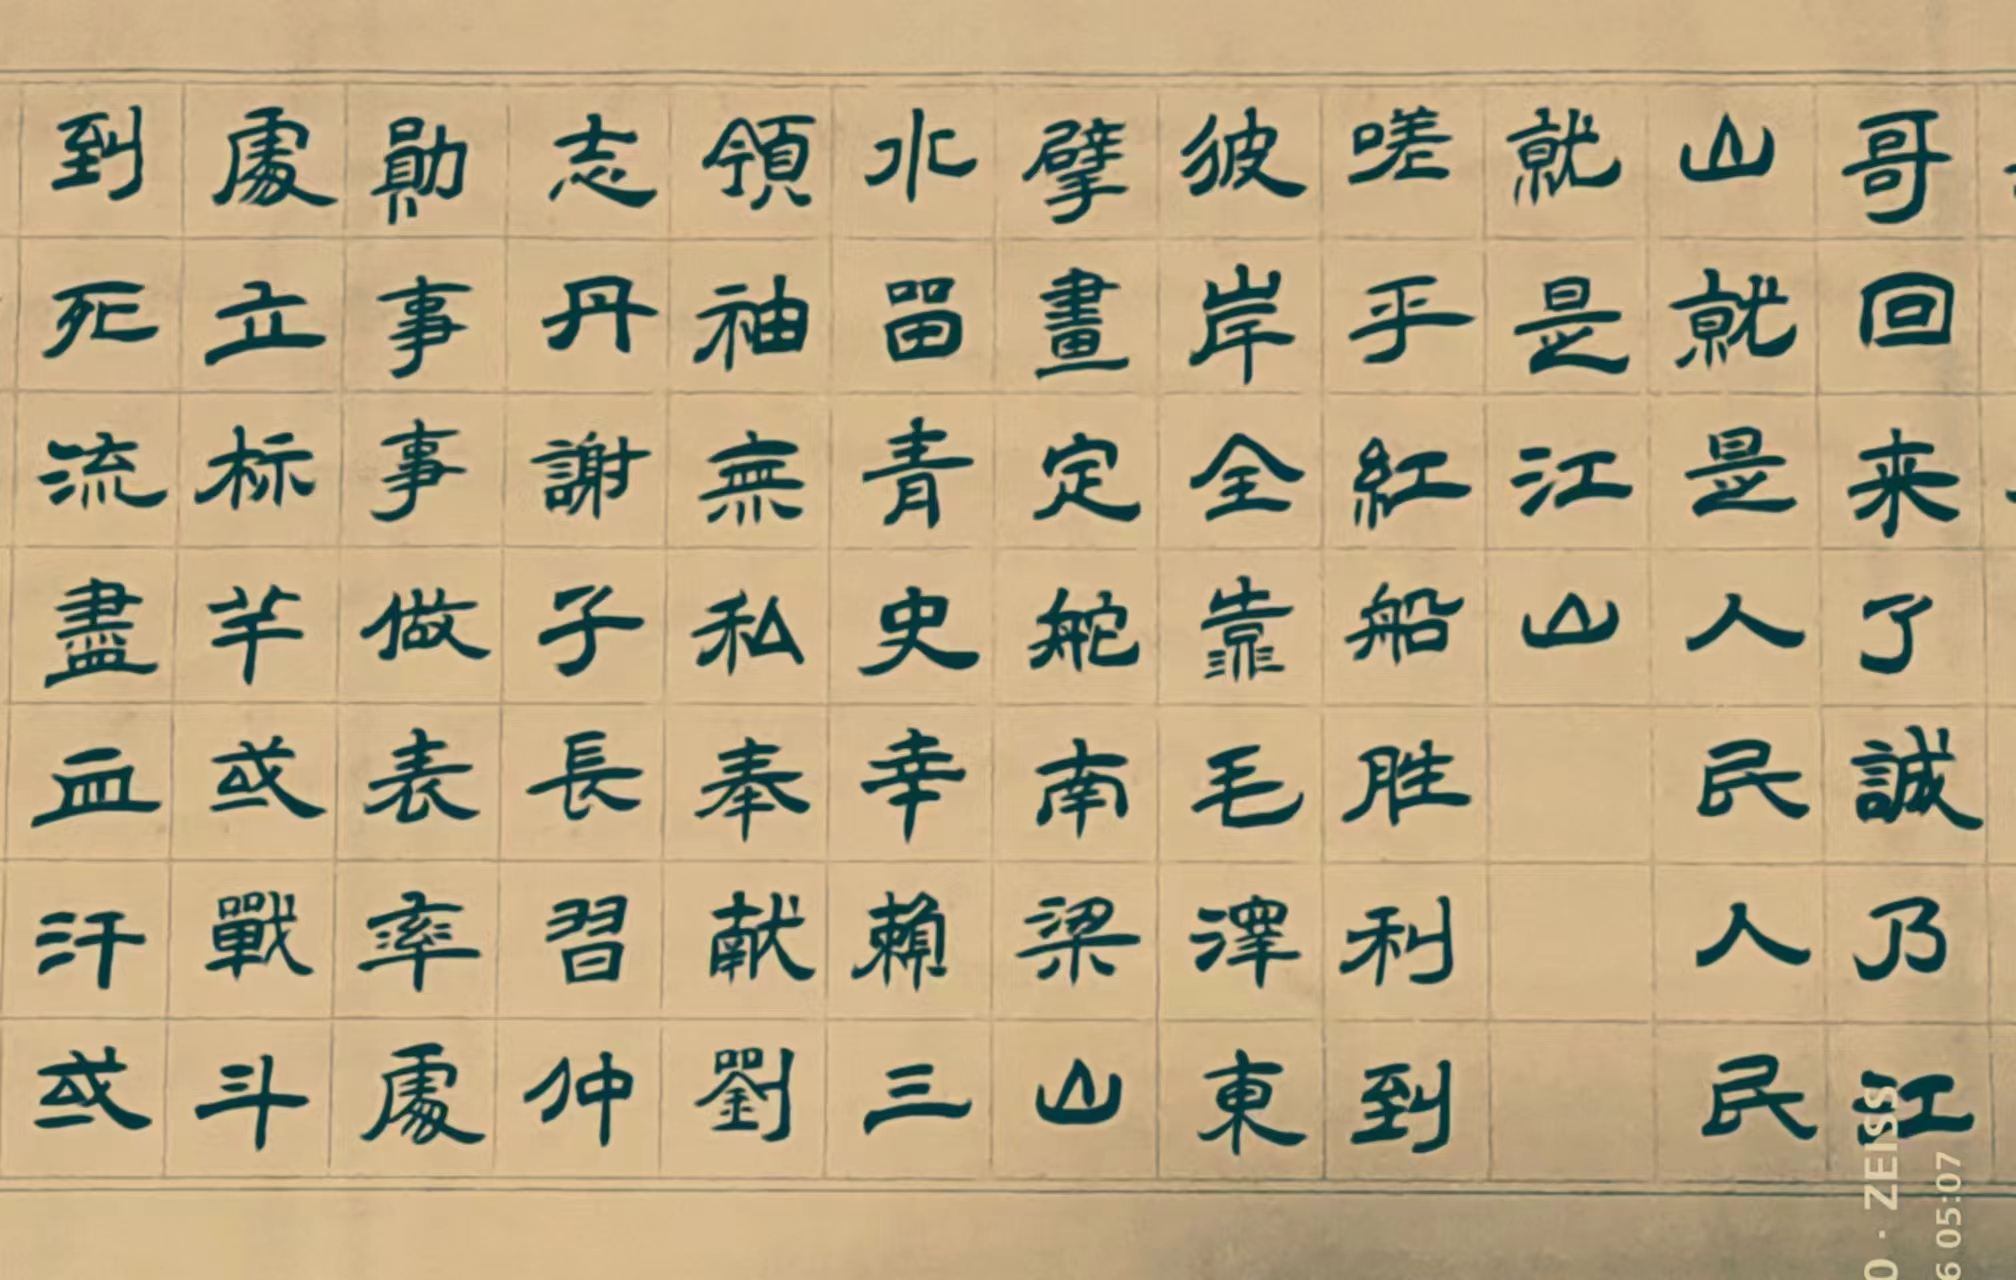 哥回来了誠乃江
山就是人民人民
就是江山
嗟乎紅船胜利到
彼岸全靠毛澤東
擘畫定舵南梁山
水留青史幸賴三
領袖無私奉献劉
志丹謝子長習仲
勛事事做表率處
處立标芊或戰斗
到死流盡血汗或
ZEISS
05:07